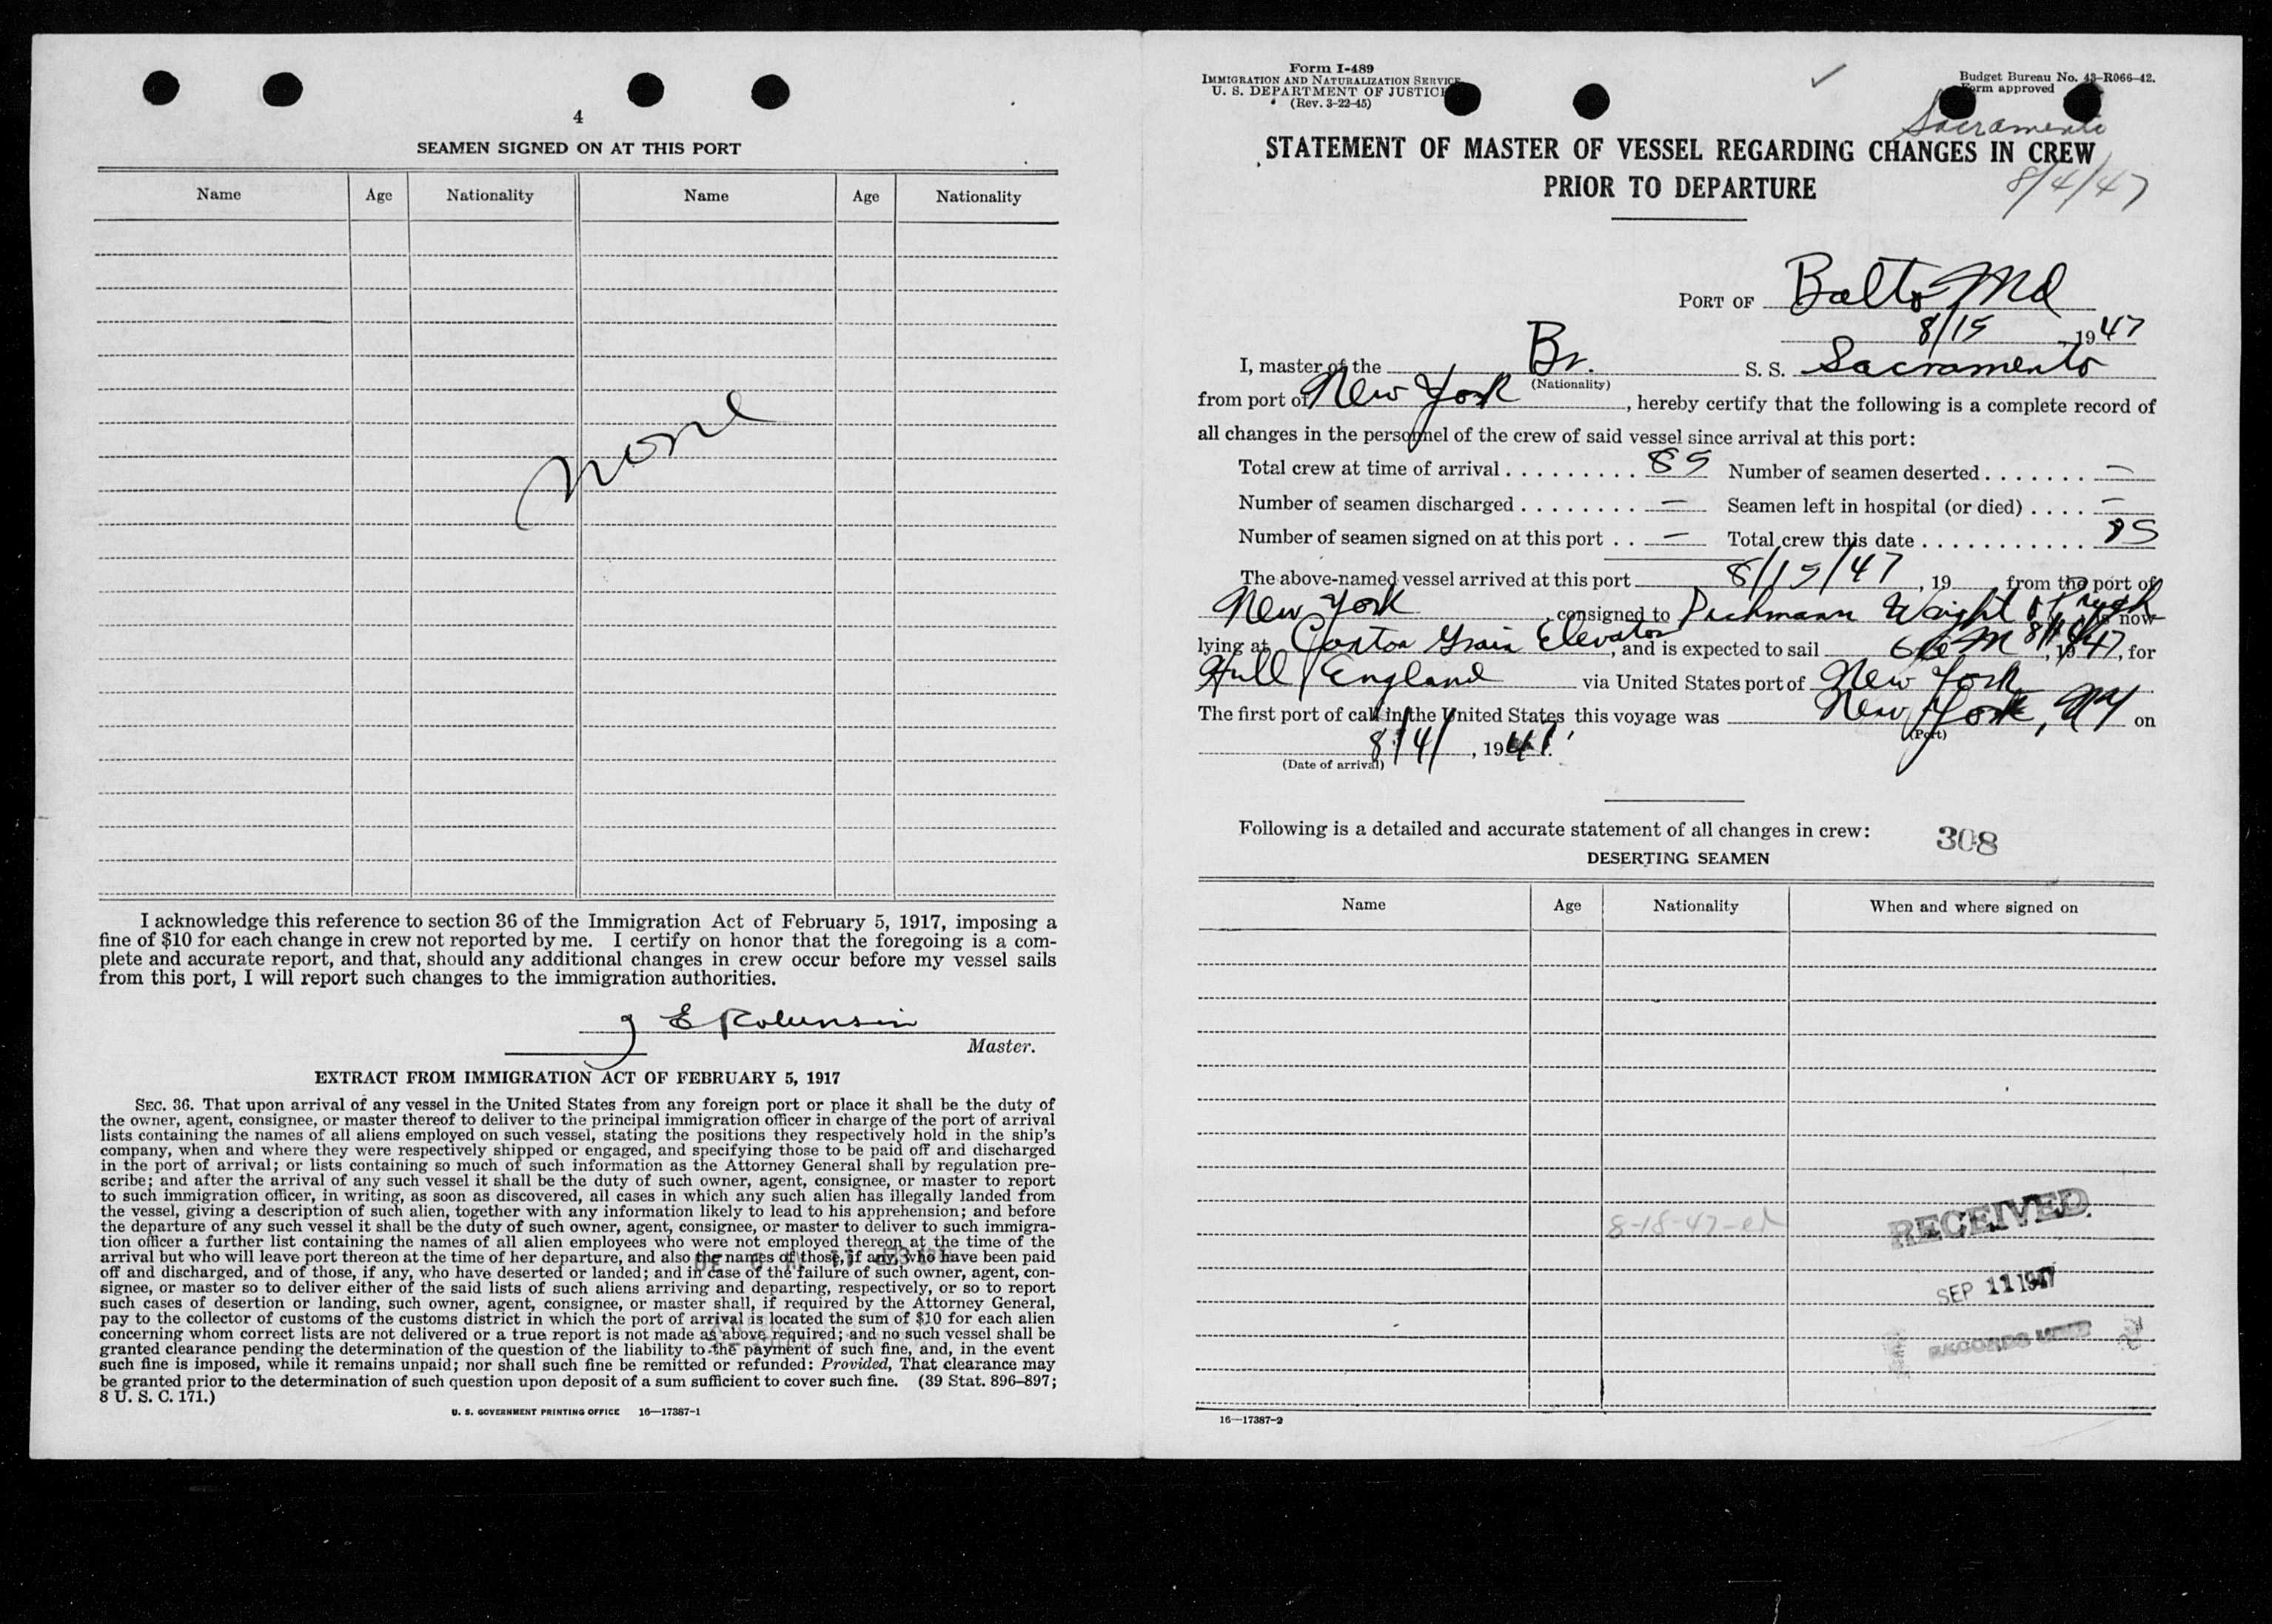 4
SEAMEN SIGNED ON AT THIS PORT
Name Age Nationality Name Age Nationality
none
I acknowledge this reference to section 36 of the Immigration Act of February 5, 1917, imposing a
fine of $10 for each change in crew not reported by me. I certify on honor that the foregoing is a com-
plete and accurate report, and that, should any additional changes in crew occur before my vessel sails
from this port, I will report such changes to the immigration authorities.
J E Robinson
Master.
EXTRACT FROM IMMIGRATION ACT OF FEBRUARY 5, 1917
SEC. 36. That upon arrival of any vessel in the United States from any foreign port or place it shall be the duty of
the owner, agent, consignee, or master thereof to deliver to the principal immigration officer in charge of the port of arrival
lists containing the names of all aliens employed on such vessel, stating the positions they respectively hold in the ship's
company, when and where they were respectively shipped or engaged, and specifying those to be paid off and discharged
in the port of arrival; or lists containing so much of such information as the Attorney General shall by regulation pre-
scribe; and after the arrival of any such vessel it shall be the duty of such owner, agent, consignee, or master to report
to such immigration officer, in writing, as soon as discovered, all cases in which any such alien has illegally landed from
the vessel, giving a description of such alien, together with any information likely to lead to his apprehension; and before
the departure of any such vessel it shall be the duty of such owner, agent, consignee, or master to deliver to such immigra-
tion officer a further list containing the names of all alien employees who were not employed thereon at the time of the
arrival but who will leave port thereon at the time of her departure, and also the names of those, if any, who have been paid
off and discharged, and of those, if any, who have deserted or landed; and in case of the failure of such owner, agent, con-
signee, or master so to deliver either of the said lists of such aliens arriving and departing, respectively, or so to report
such cases of desertion or landing, such owner, agent, consignee, or master shall, if required by the Attorney General,
pay to the collector of customs of the customs district in which the port of arrival is located the sum of $10 for each alien
concerning whom correct lists are not delivered or a true report is not made as above required; and no such vessel shall be
granted clearance pending the determination of the question of the liability to the payment of such fine, and, in the event
such fine is imposed, while it remains unpaid; nor shall such fine be remitted or refunded: Provided, That clearance may
be granted prior to the determination of such question upon deposit of a sum sufficient to cover such fine. (39 Stat. 896–897;
8 U. S. C. 171.)
U. S. GOVERNMENT PRINTING OFFICE 16—17387-1
Form I-489
IMMIGRATION AND NATURALIZATION SERVICE
U. S. DEPARTMENT OF JUSTICE
(Rev. 3-22-45)
Budget Bureau No. 43-R066-42.
Form approved
Sacramento
STATEMENT OF MASTER OF VESSEL REGARDING CHANGES IN CREW
PRIOR TO DEPARTURE
8/4/47
PORT OF Balto Md
8/15, 1947
I, master of the Br. S. S. Sacramento
(Nationality)
from port of New York, hereby certify that the following is a complete record of
all changes in the personnel of the crew of said vessel since arrival at this port:
Total crew at time of arrival 85 Number of seamen deserted —
Number of seamen discharged — Seamen left in hospital (or died) —
Number of seamen signed on at this port — Total crew this date 85
The above-named vessel arrived at this port 8/15/47, 19 from the port of
New York, consigned to Wright is now
lying at Canton Grain Elevator, and is expected to sail 1947, for
Hull England via United States port of New York
The first port of call in the United States this voyage was New York, NY on
(Port)
8/4/, 1947.
(Date of arrival)
Following is a detailed and accurate statement of all changes in crew:
308
DESERTING SEAMEN
Name Age Nationality When and where signed on
RECEIVED
8-18-47-
SEP 11 1947
RECORDS
16—17387-2